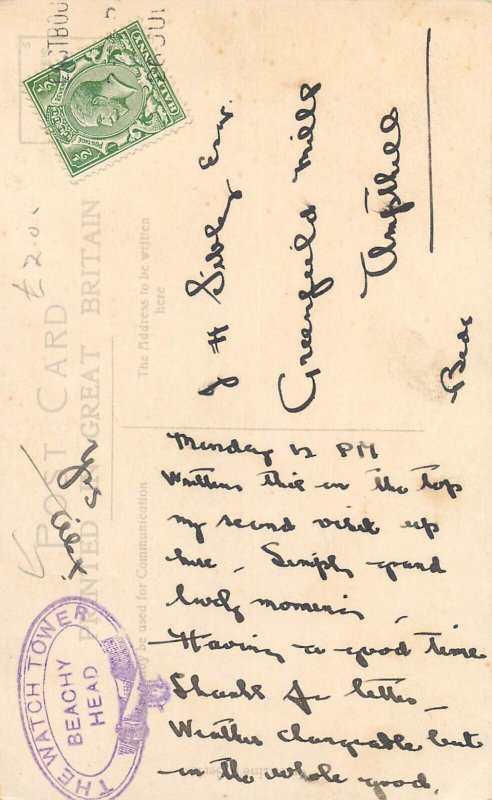 POST CARD
PRINTED IN GREAT BRITAIN
The Address to be written
here
may be used for Communication
HALFPENNY
POSTAGE
£2.00
J H Sibley Esq.
Greenfield Mills
Ampthill
Beds
Monday 12 PM
Writing this on the top
my second visit up
here. Simply grand
lovely morning
Having a good time
Thanks for letter
Weather changeable but
on the whole good.
THE WATCH TOWER
BEACHY
HEAD